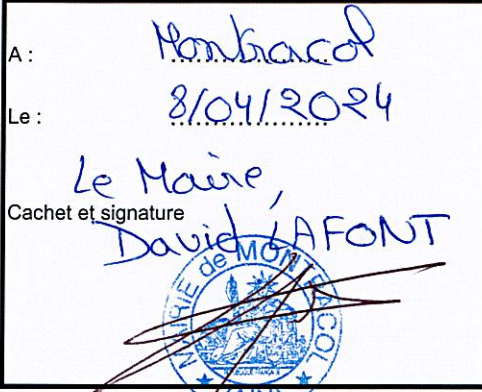 A : Montracol
Le : 8/04/2024
Le Maire,
Cachet et signature
David LAFONT
MAIRIE de MONTRACOL